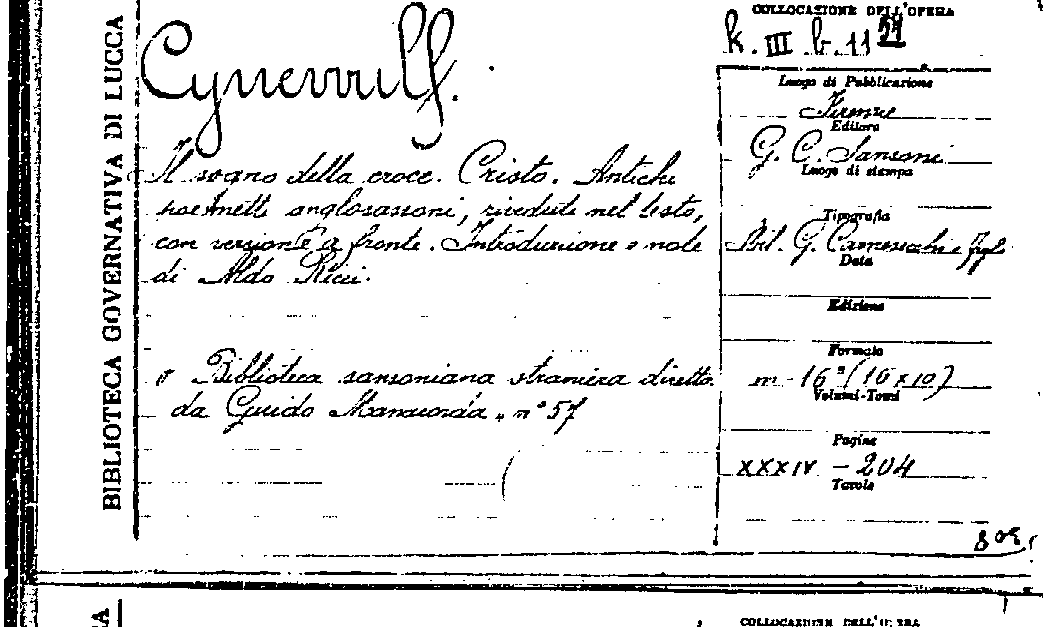 BIBLIOTECA GOVERNATIVA DI LUCCA
Cynewulf.
Il sogno della croce. Cristo. Antichi
poemetti anglosassoni, riveduti nel testo,
con versione a fronte. Introduzione e note
di Aldo Ricci.
Biblioteca sansoniana straniera diretta
da Guido Manacorda, n° 57
COLLOCAZIONE DELL'OPERA
k. III b. 11
Luogo di Pubblicazione
Firenze
Editore
G. C. Sansoni
Luogo di stampa
Tipografia
Stil. G. Carnesecchi e figli
Data
Edizione
Formato
m - 16° (16x10)
Volumi-Tomi
Pagine
XXXIV - 204
Tavole
COLLOCAZIONE DELL'OPERA